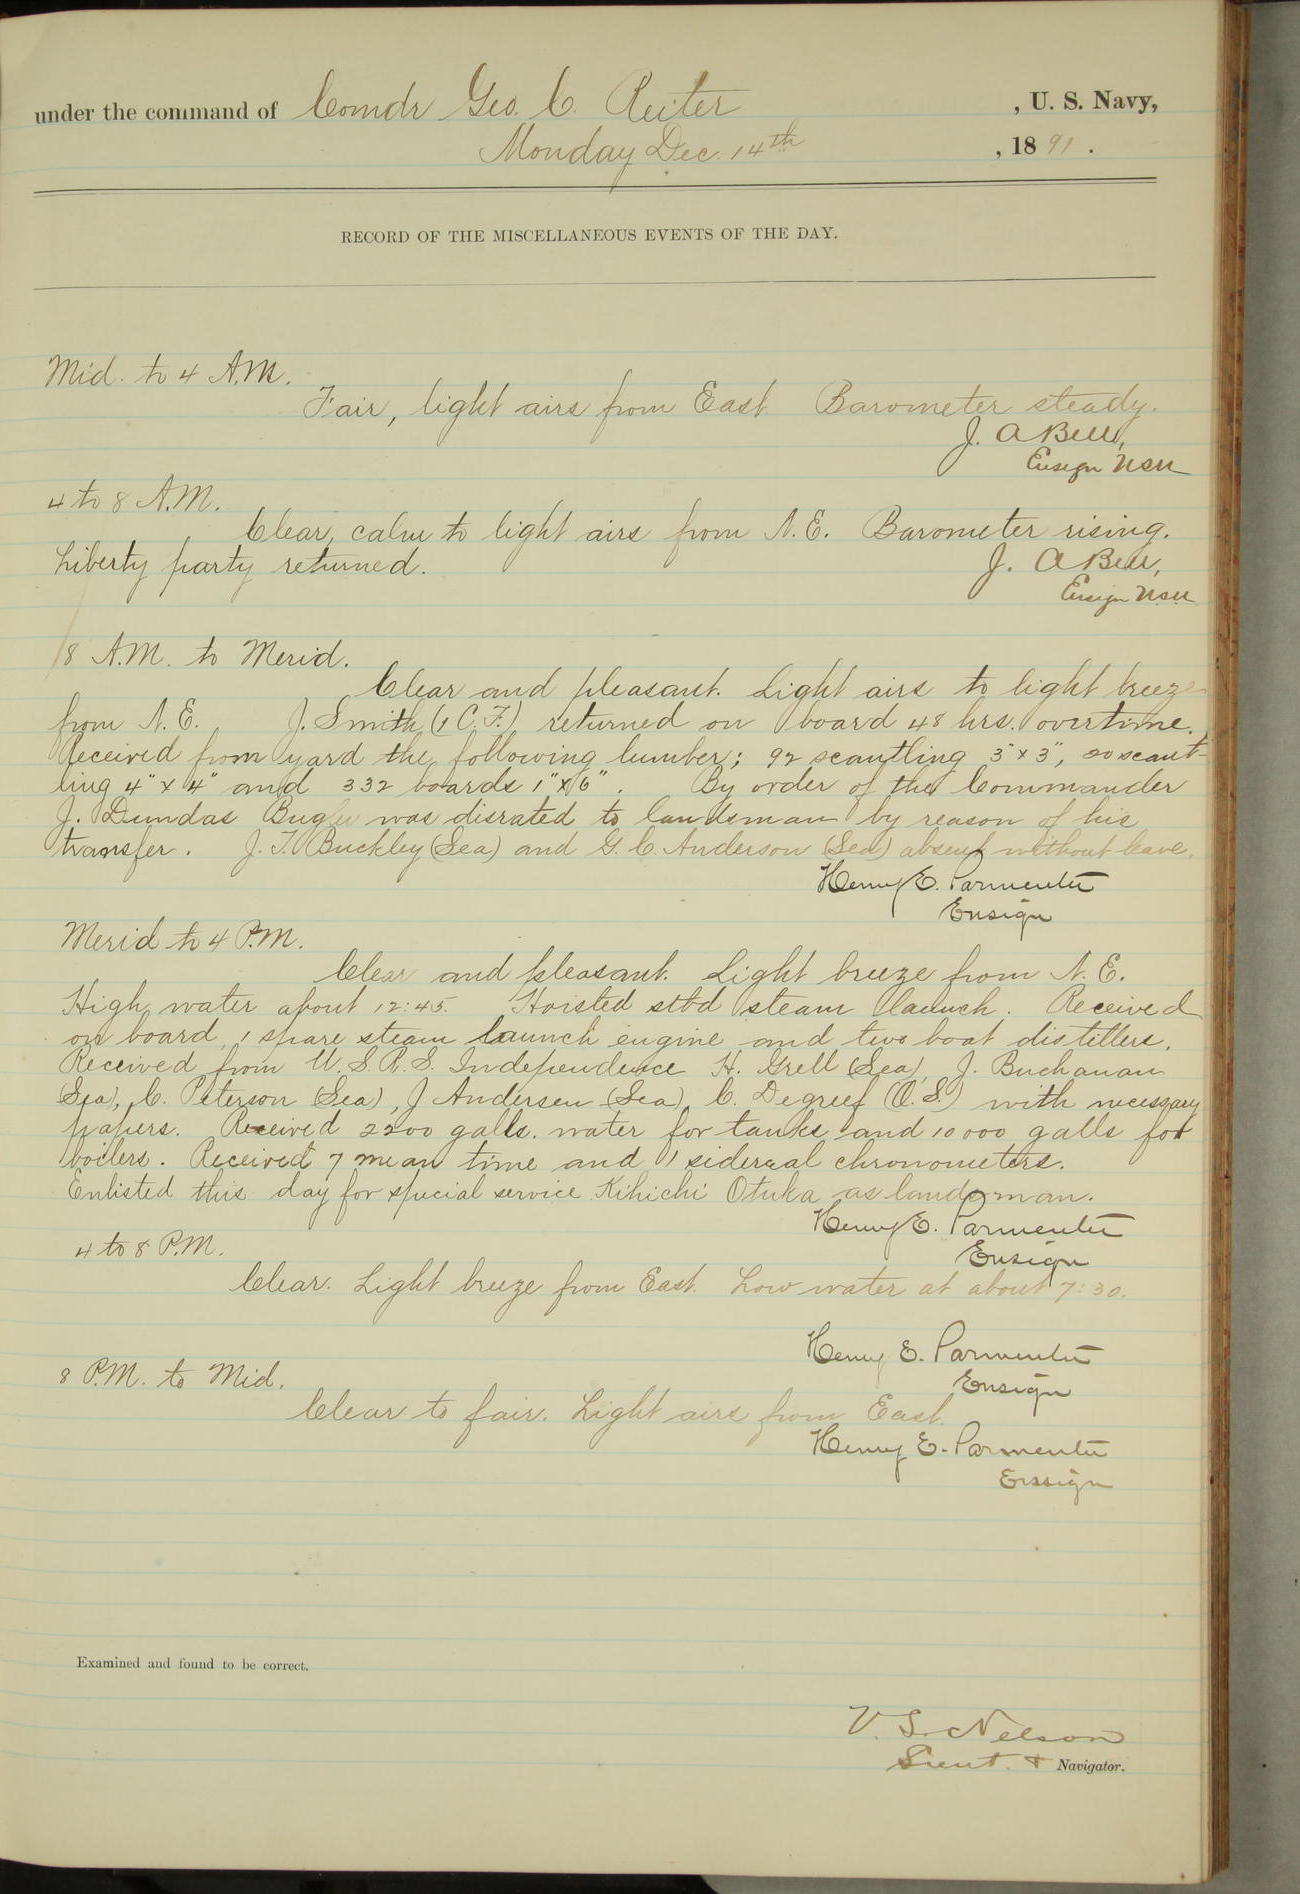 under the command of Comdr Geo. C. Reiter , U. S. Navy,
Monday Dec. 14th , 1891 .
RECORD OF THE MISCELLANEOUS EVENTS OF THE DAY.
Mid. to 4 A.M.
Fair, light airs from East. Barometer steady.
J. A Bell,
Ensign USN
4 to 8 A.M.
Clear, calm to light airs from N.E. Barometer rising.
Liberty party returned.
J. A Bell,
Ensign USN
8 A.M. to Merid.
Clear and pleasant. Light airs to light breeze
from N.E. J. Smith (1 C.F.) returned on board 48 hrs. overtime.
Received from yard the following lumber; 92 scantling 3"x3", 20 scant-
ling 4"x4" and 332 boards 1"x6". By order of the Commander
J. Dundas Bugler was disrated to landsman by reason of his
transfer. J. T. Buckley (Sea) and G. C. Anderson (Sea) absent without leave.
Henry E. Parmenter
Ensign
Merid to 4 P.M.
Clear and pleasant. Light breeze from N.E.
High water about 12:45. Hoisted stbd steam launch. Received
on board, 1 spare steam launch engine and two boat distillers.
Received from U.S.R.S. Independence H. Grell (Sea), J. Buchanan
(Sea), C. Peterson (Sea), J Andersen (Sea), C. Degreef (O.S.) with necessary
papers. Received 2200 galls. water for tanks and 10000 galls for
boilers. Received 7 mean time and 1 sidereal chronometers.
Enlisted this day for special service Kihichi Otuka as landsman.
Henry E. Parmenter
Ensign
4 to 8 P.M.
Clear. Light breeze from East. Low water at about 7:30.
Henry E. Parmenter
Ensign
8 P.M. to Mid.
Clear to fair. Light airs from East.
Henry E. Parmenter
Ensign
Examined and found to be correct.
V. S. Nelson
Lieut. & Navigator.